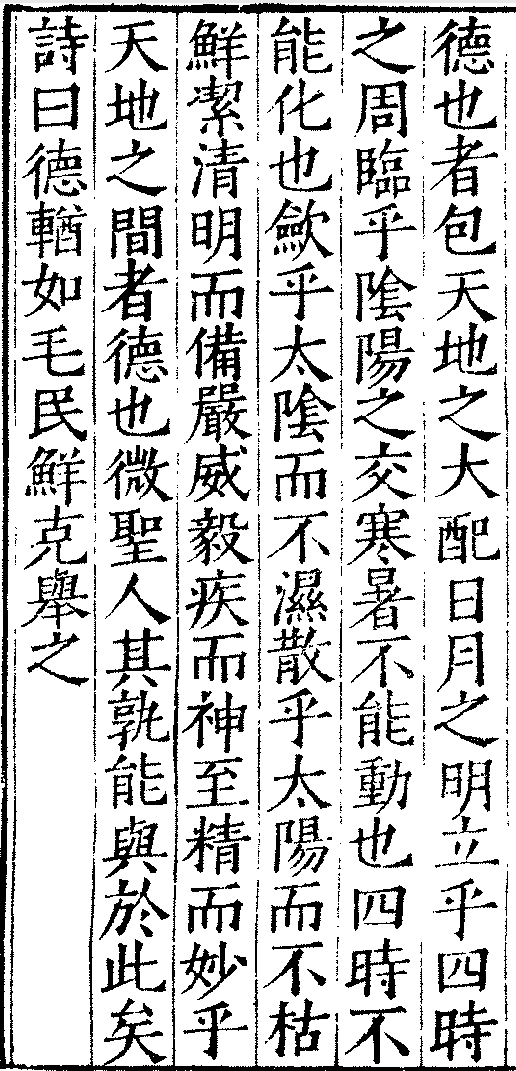 德也者包天地之大配日月之明立乎四時
之周臨乎陰陽之交寒暑不能動也四時不
能化也歛乎太陰而不濕散乎太陽而不枯
鮮潔清明而備嚴威毅疾而神至精而妙乎
天地之間者德也微聖人其孰能與於此矣
詩曰德輶如毛民鮮克舉之